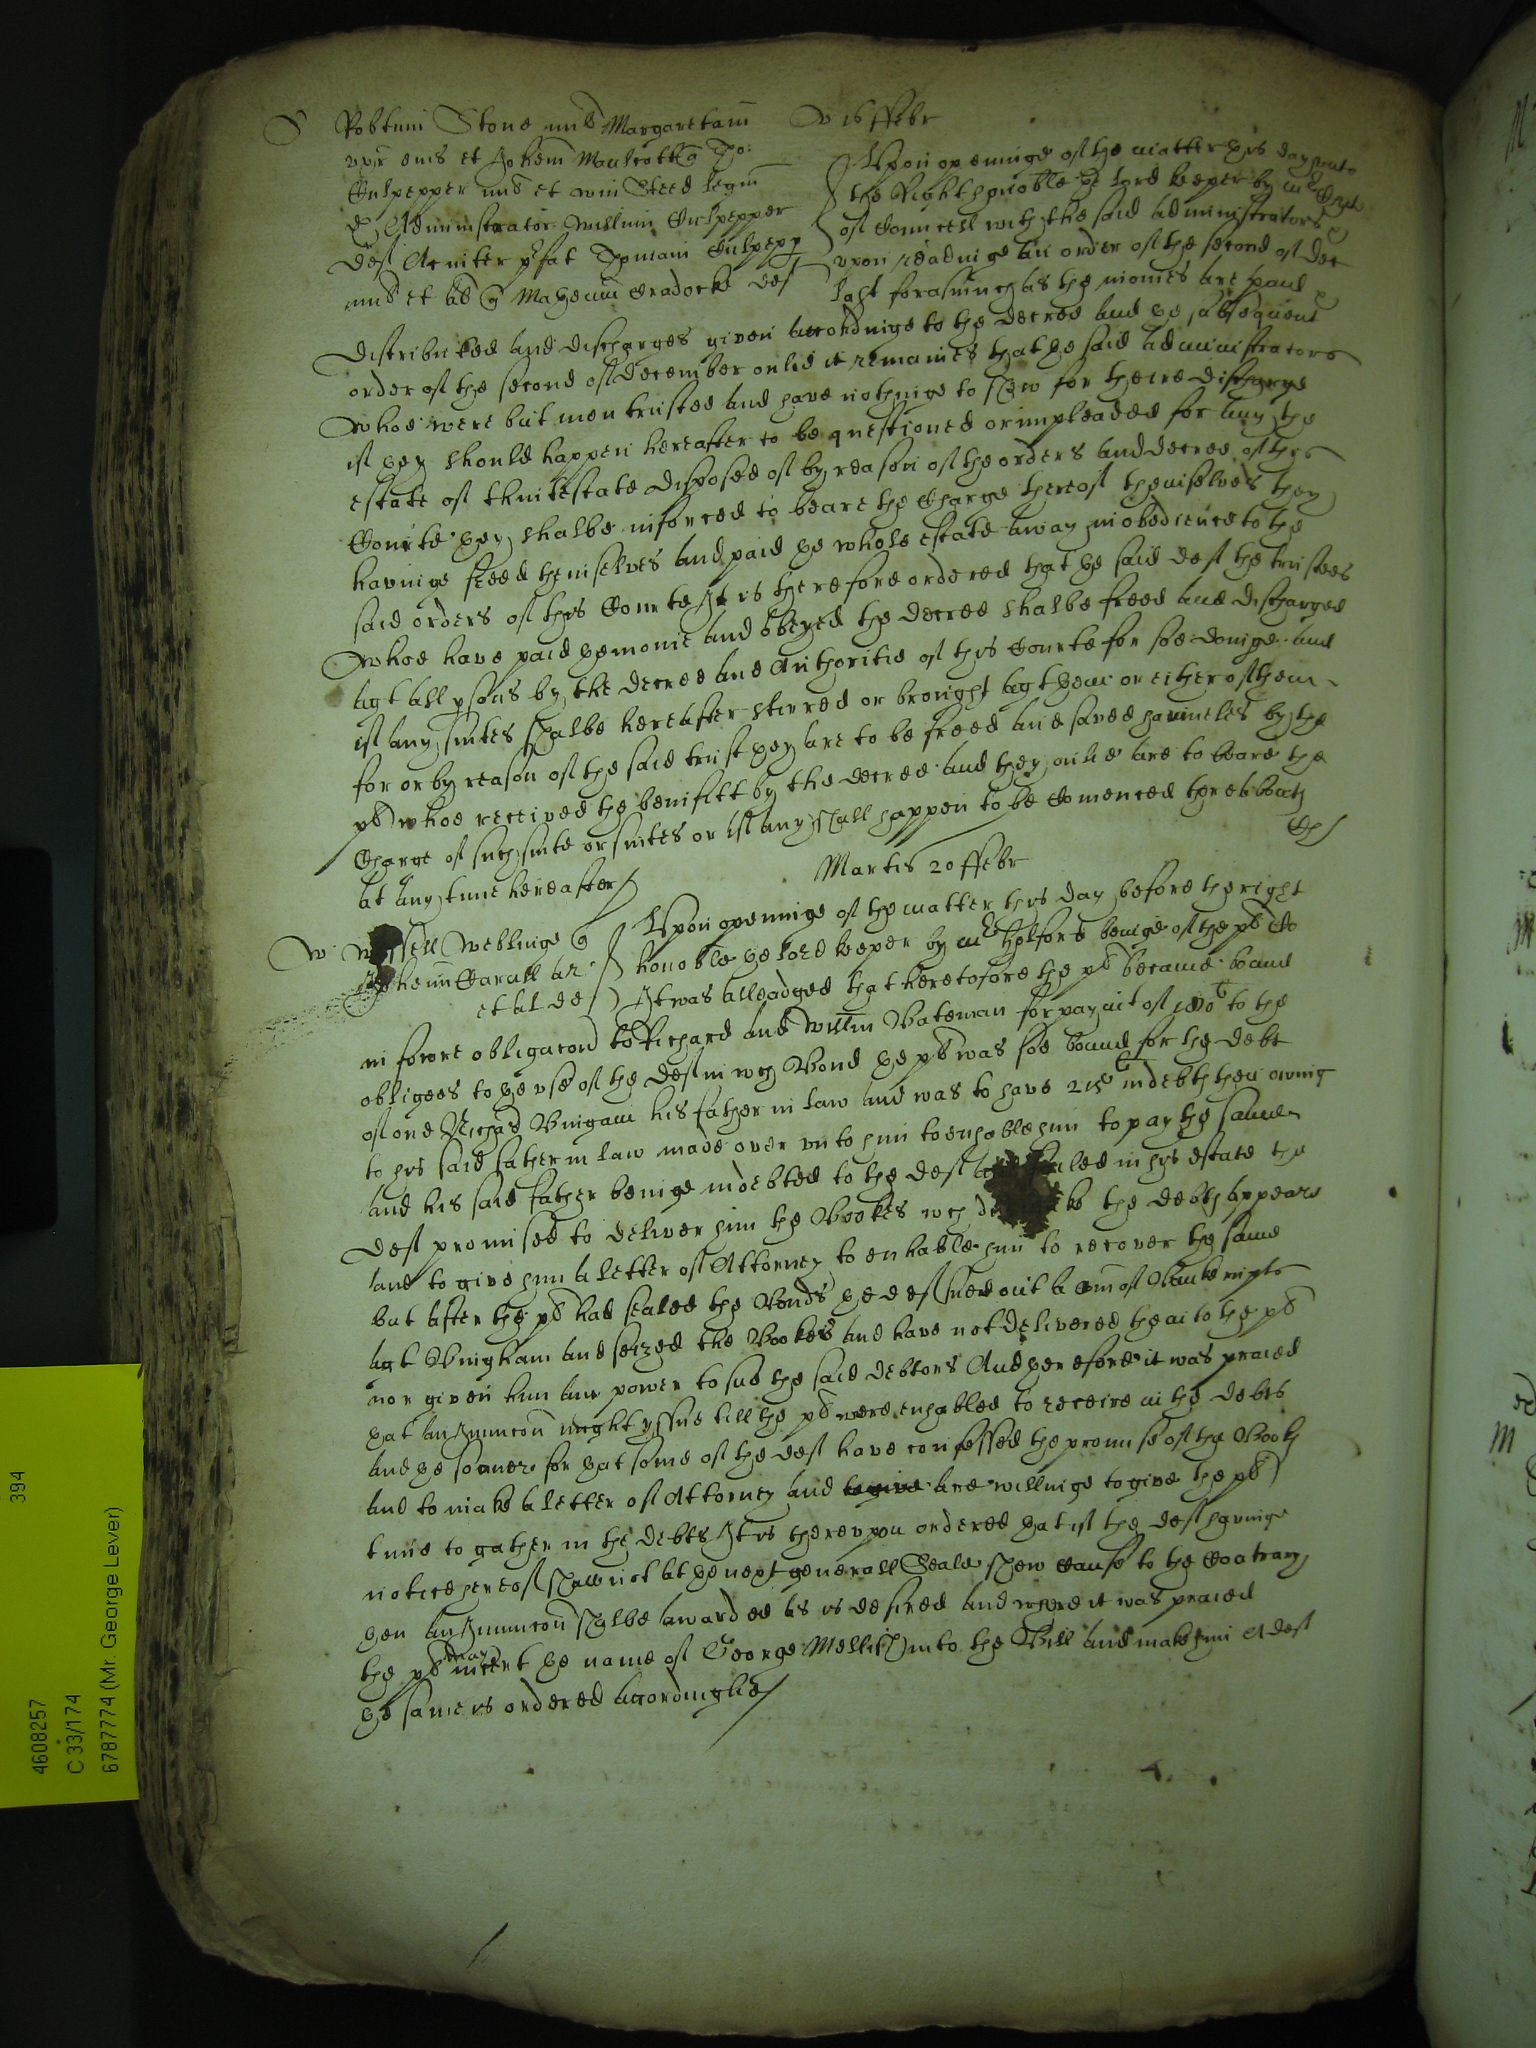 S Robtum Stone mil Margaretam
uxor eius et Johem Maulcott Tho:
Culpepper mil et Wm Steed legu
Administrator Willmi Culpepper
def Ac inter Thomam Culpepp
mil et al Mathewm Cradocke def
16 ffebr
Upon openinge of the matter this day unto
the Right honoble the lord keeper by
of Councell with the said administrators
upon readinge an order of the second of Dec
last forasmuch as the monies are paid
distributed and discharges given accordinge to the decree and the subsequent
order of the second of december onlie it remaines that the said administrators
whoe were but men trusted and have nothinge to shew for theire discharge
if they should happen hereafter to be questioned or impleaded for any the
estate of thintestate disposed of by reason of the orders and decree of this
Courte they shalbe inforced to beare the charge thereof themselves they
havinge feed themselves and paid the whole estate away in obedience to the
said orders of this Courte It is therefore ordered that the said def the trustees
whoe have paid the monie and obeyed the decree shalbe freed and discharged
agt all psons by the decree and Authoritie of this Courte for soe doinge and
if any suites shalbe hereafter stirred or brought agt them or either of them
for or by reason of the said trust they are to be freed and saved harmeles by the
pl whoe received the benifitt by the decree and they onlie are to beare the
charge of such suite or suites or if any shall happen to be Comenced
at any time hereafter
Martis 20 ffebr
W Weblinge
Johem Carall ar
et al def
Upon openinge of the matter this day before the right
honoble the lord keeper by mr Holford beinge of the pl Co
It was alleadged that heretofore the pl became bound
in fower obligacons to Richard and Willm Bateman for paymt of to the
obligees to the use of the def in wch Bond the pl was soe bound for the debt
of one Richard Bingam his father in law and was to have 215l in debts then owing
to his said father in law made over unto him to enhable him to pay the same
And his said father beinge indebted to the def in his estate the
def promised to deliver him the Bookes wch the debts appeare
and to give him a letter of Attorney to enhable him to recover the same
but after the pl had sealed the Bonds the def sued out a Com of Bankrupts
agt Bingham and seized the Bookes and have not delivered them to the pl
nor given him any power to sue the said debtors And therefore it was praied
that an Iniunccon might yssue till the pl were enhabled to receive in the debts
and the sooner for that some of the def have confessed the promise of the Books
and to make a letter of Attorney and to give are willinge to give the pl
time to gather in the debts It is thereupon ordered that if the def havinge
notice hereof shall not at the next generall Seale shew cause to the Contrary
then an Iniunccon shalbe awarded as is desired and where it was praied
the pl may insert the name of George Mellish into the Bill and make him A def
the same is ordered accordinglie
394
4608257
C 33/174
6787774 (Mr. George Lever)